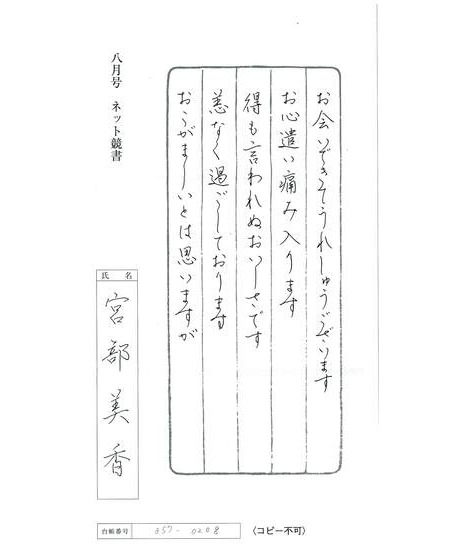 お会いできてうれしゅうございます
お心遣い痛み入ります
得も言われぬおいしさです
恙なく過ごしております
おこがましいとは思いますが
八月号 ネット競書
氏名
宮部美香
台帳番号 357-0208
〈コピー不可〉